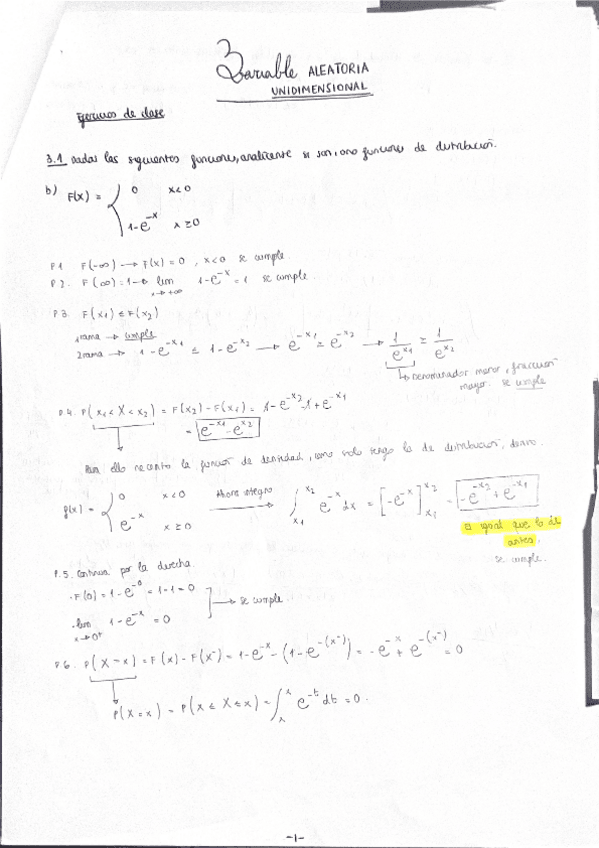 3 Variable ALEATORIA
UNIDIMENSIONAL
Ejercicios de clase
3.1 Dadas las siguientes funciones, analícense si son, o no funciones de distribución.
b) F(x) = { 0 x<0
1-e^-x x≥0
P.1 F(-∞) → F(x) = 0 , x<0 se cumple.
P.2. F(∞)=1 → lim x→+∞ 1-e^-x = 1 se cumple.
P.3. F(x1) ≤ F(x2)
1ª rama → cumple
2 rama → 1-e^-x1 ≤ 1-e^-x2 → e^-x1 ≥ e^-x2 → 1/e^x1 ≥ 1/e^x2
↳ Denominador menor, fracción
mayor. se cumple
P.4. P(x1<X<x2) = F(x2)-F(x1) = 1-e^-x2-1+e^-x1
= e^-x1-e^-x2
Para ello necesito la función de densidad, como solo tengo la de distribución, derivo.
f(x) = { 0 x<0
e^-x x≥0 Ahora integro → ∫x1^x2 e^-x dx = [-e^-x]x1^x2 = -e^-x2+e^-x1
es igual que lo de
antes.
se cumple.
P.5. Continua por la derecha.
·F(0)=1-e^-0=1-1=0
·lim x→0+ 1-e^-x=0 → se cumple.
P.6. P(X=x)=F(x)-F(x^-)=1-e^-x-(1-e^-(x^-))=-e^-x+e^-(x^-)=0
P(X=x) = P(x≤X≤x)=∫x^x e^-t dt=0.
-1-